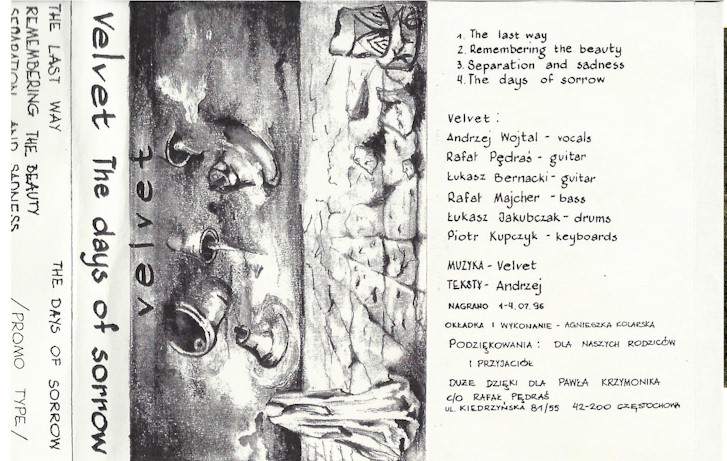 THE LAST WAY
REMEMBERING THE BEAUTY
SEPARATION AND SADNESS
THE DAYS OF SORROW
/PROMO TYPE/
Velvet The days of sorrow
velvet
1. The last way
2. Remembering the beauty
3. Separation and sadness
4. The days of sorrow
Velvet:
Andrzej Wojtal - vocals
Rafał Pędraś - guitar
Łukasz Bernacki - guitar
Rafał Majcher - bass
Łukasz Jakubczak - drums
Piotr Kupczyk - keyboards
MUZYKA - Velvet
TEKSTY - Andrzej
NAGRANO 1-4.07.96
OKŁADKA I WYKONANIE - AGNIESZKA KOLARSKA
PODZIĘKOWANIA: DLA NASZYCH RODZICÓW
I PRZYJACIÓŁ
DUŻE DZIĘKI DLA PAWŁA KRZYMONIKA
C/O RAFAŁ PĘDRAŚ
UL. KIEDRZYŃSKA 81/55 42-200 CZĘSTOCHOWA